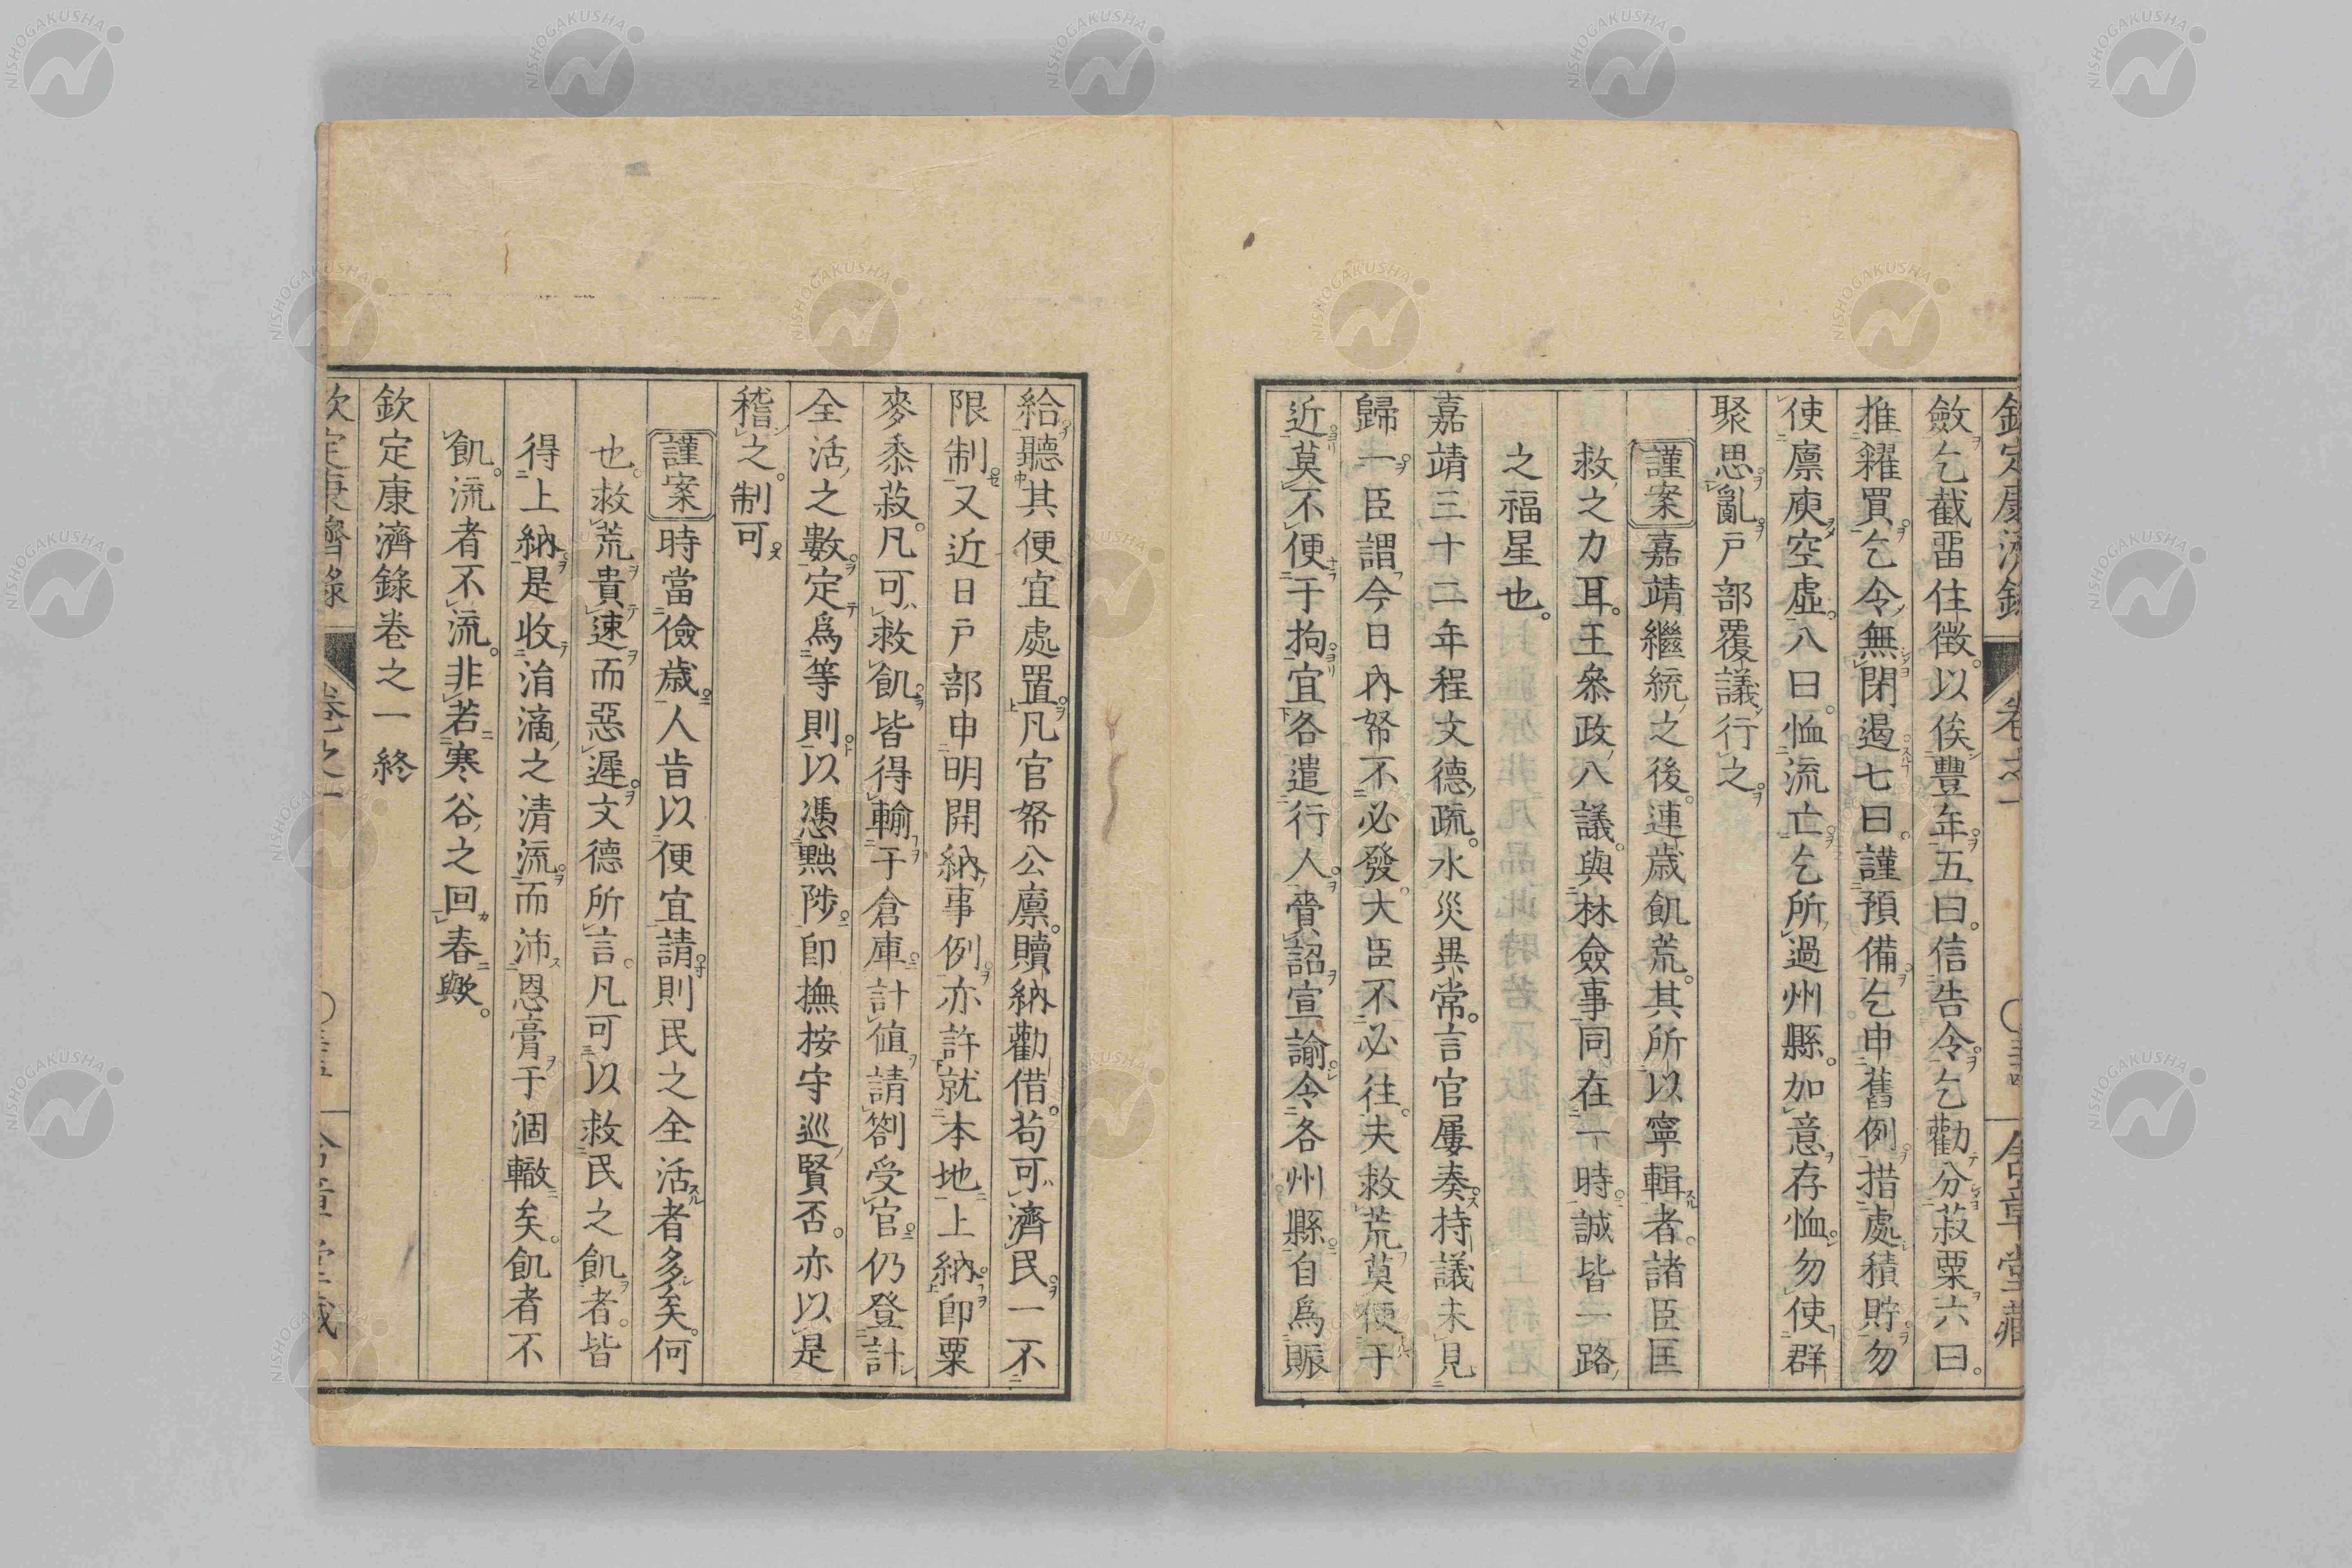 欽定康濟錄 卷之一 〇三十四 合章堂藏
斂乞截畱住徵。以俟豐年五曰。信告令乞勸分菽粟六曰。
推糴買乞令無閉遏七曰。謹預備乞申舊例措處積貯勿
使廪庾空虛。八曰。恤流亡乞所過州縣。加意存恤。勿使群
聚思亂戸部覆議行之。
謹案嘉靖繼統之後。連歲飢荒。其所以寧輯者。諸臣匡
救之力耳。王叅政八議。與林僉事同在一時誠皆一路
之福星也。
嘉靖三十二年程文德疏。水災異常。言官屢奏持議未見
歸一。臣謂今日內帑不必發。大臣不必往。夫救荒莫便于
近莫不便于拘宜各遣行人賫詔宣諭令各州縣自爲賑
給聽其便宜處置凡官帑公廪。贖納勸借。苟可濟民一不
限制又近日戸部申明開納事例亦許就本地上納卽粟
麥黍菽。凡可救飢皆得輸于倉庫計値請劄受官仍登計
全活之數定爲等則以憑黜陟卽撫按守巡賢否。亦以是
稽之。制可
謹案時當儉歲人肯以便宜請則民之全活者多矣。何
也。救荒貴速而惡遲文德所言。凡可以救民之飢者。皆
得上納是收涓滴之清流而沛恩膏于涸轍矣。飢者不
飢。流者不流。非若寒谷之回春歟。
欽定康濟錄卷之一終
欽定康濟錄 卷之一 〇三十五 合章堂藏